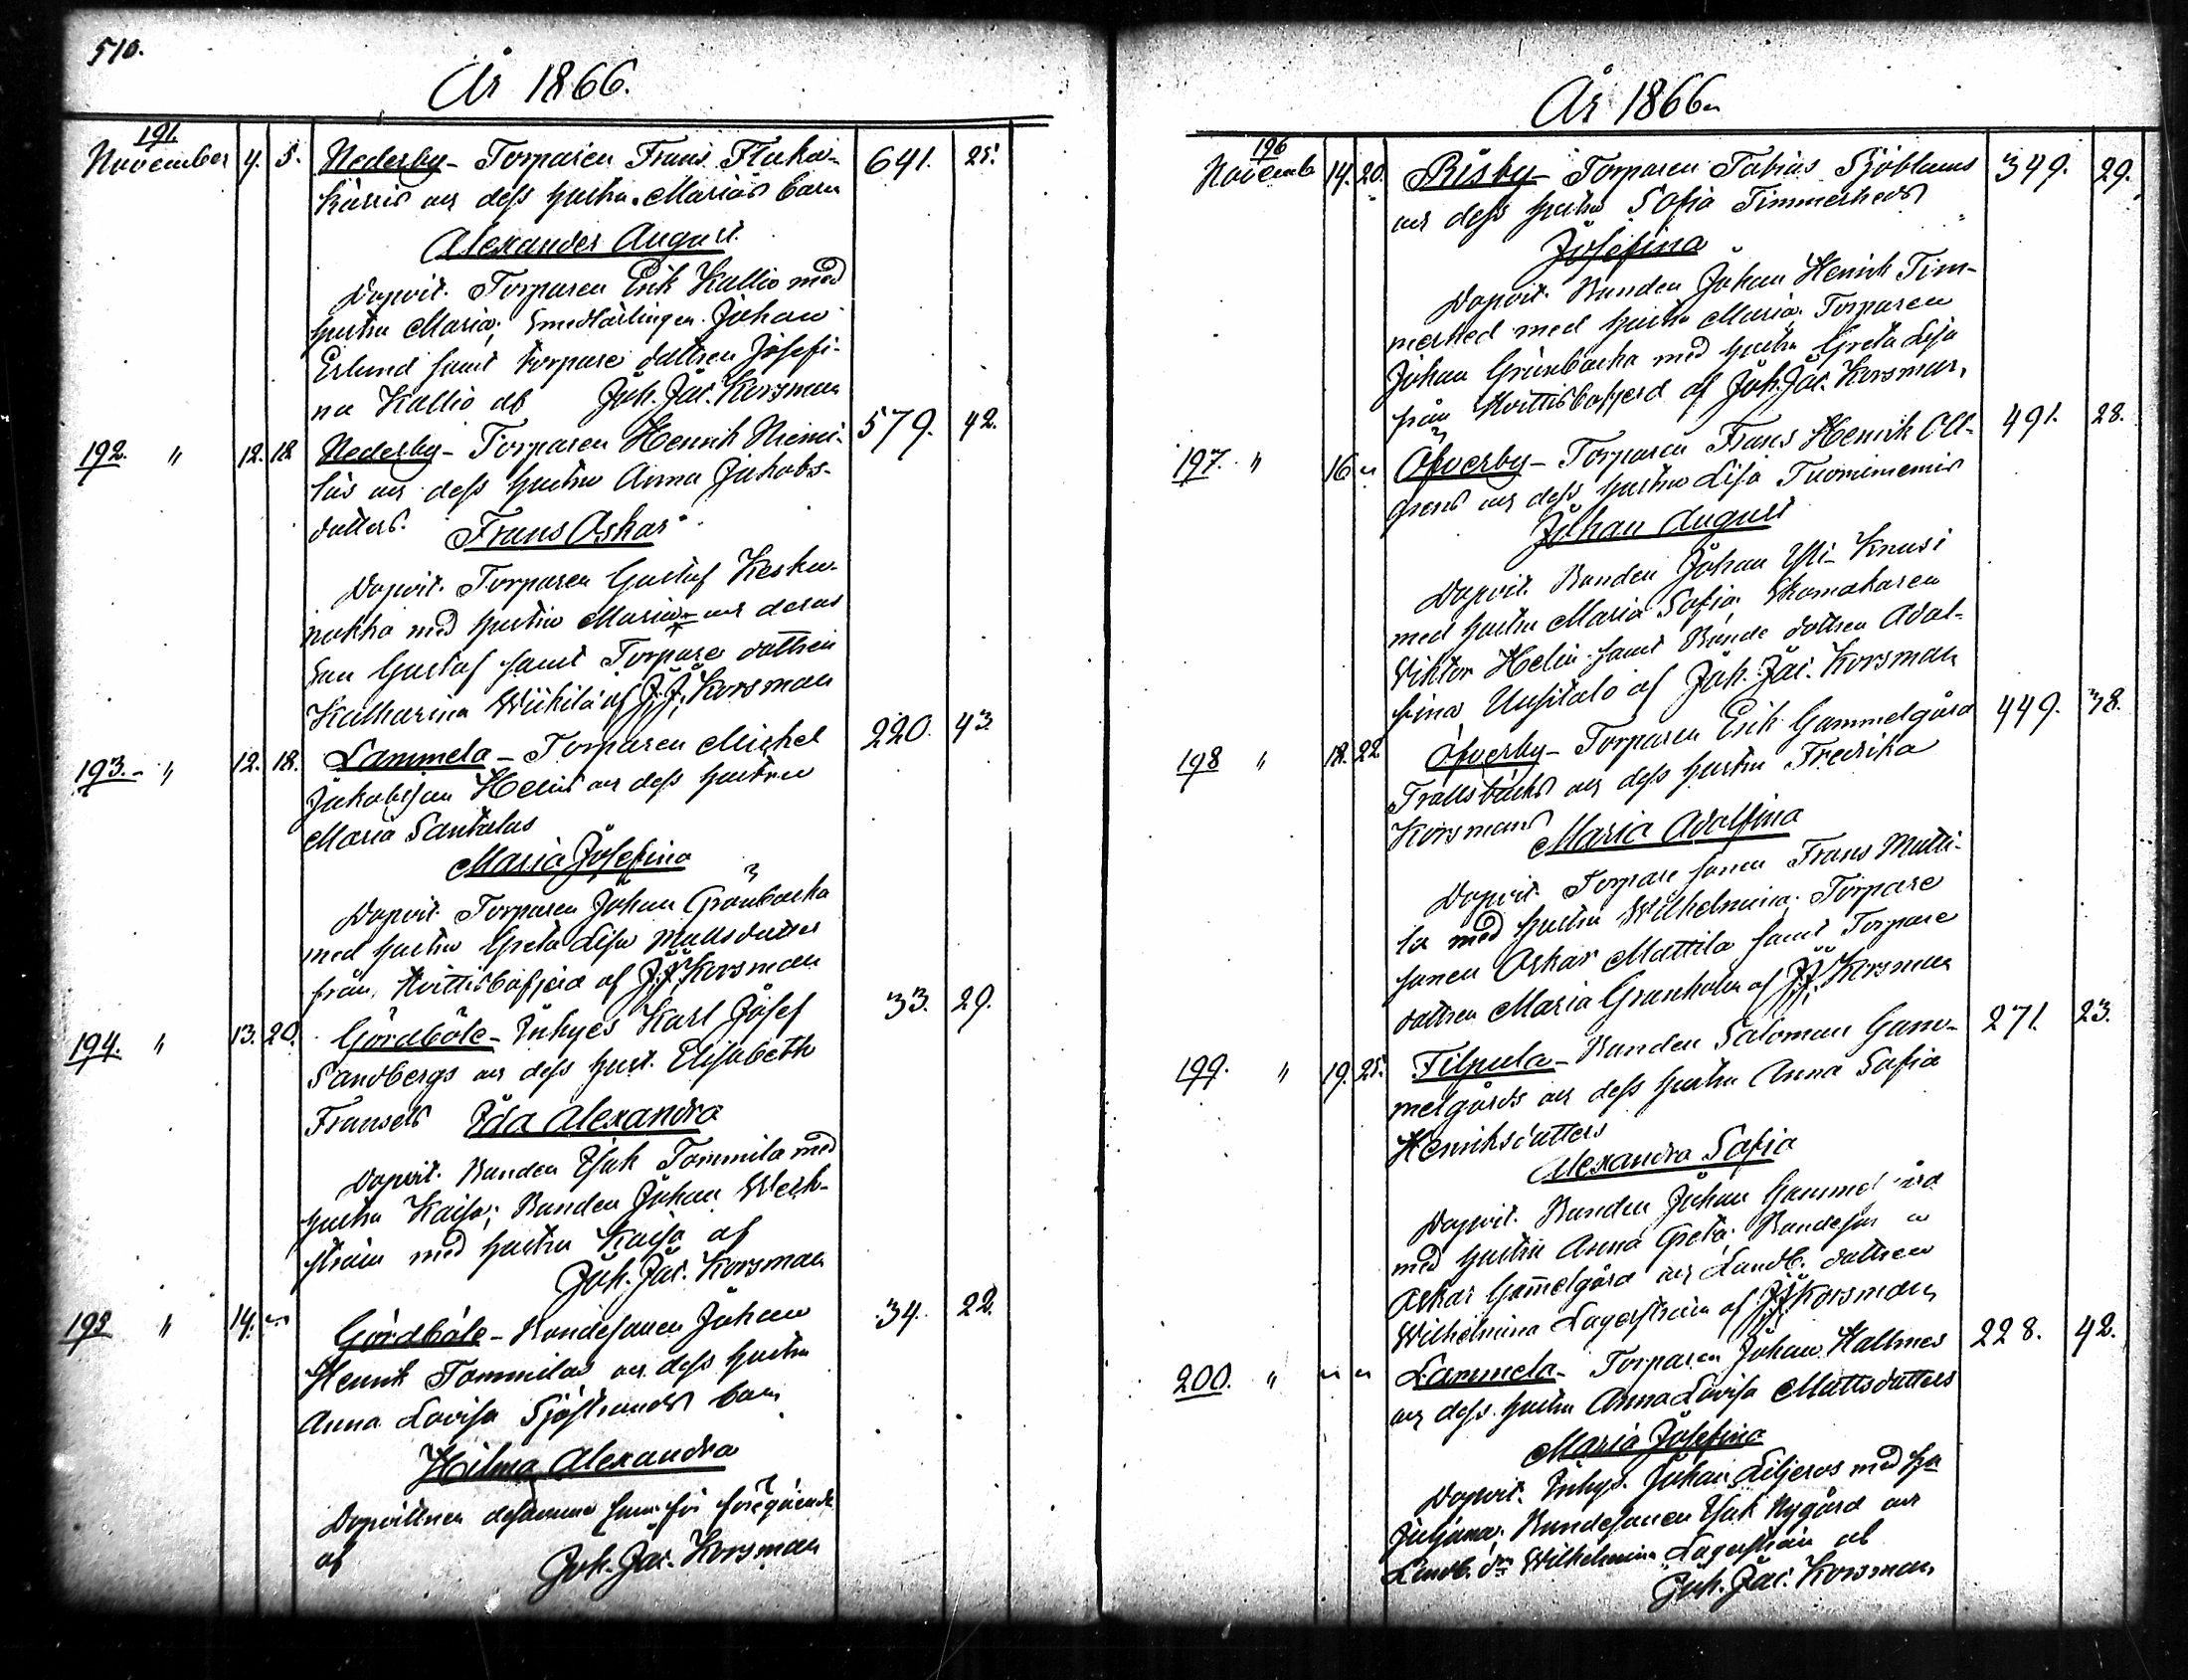 510.
År 1866.
191.
November 4. 5. Nederby - Torparen Frans Fluka-
kärris och dess hustru Marias barn 641. 25.
Alexander August.
Dopvit. Torparen Erik Kallio med
hustru Maria; Smedlärlingen Johan
Erlund samt torpare dottren Josefi-
na Kallio af Joh. Jac. Korsman
192. " 12. 18. Nederby - Torparen Henrik Niemi- 579. 42.
läs och dess hustru Anna Jakobs-
dotters.
Frans Oskar
Dopvit. Torparen Gustaf Keska-
nukka med hustru Maria och deras
Son Gustaf samt Torpare dottren
Katharina Wiikilä af J. J. Korsman
193. - " 12. 18. Lammela - Torparen Michel 220. 43.
Jakobsson Helins och dess hustru
Maria Santalas
Maria Josefina
Dopvit. Torparen Johan Grönbacka
med hustru Greta Lisa Mattsdotter
från Kvittisbofjerd af J. J. Korsman
194. " 13. 20. Gördböle - Inhyses Karl Josef 33. 29.
Sandbergs och dess hust. Elisabeth
Fransdr Ida Alexandra
Dopvit. Bonden Isak Tommila med
hustru Kaisa; Bonden Johan Weck-
ström med hustru Kaisa af
Joh. Jac. Korsman
195 " 14. " Gördböle - Bondesonen Johan 34. 22.
Henrik Tommilas och dess hustru
Anna Lovisa Sjöstrands barn
Hilma Alexandra
Dopvittnen desamma som för föregående
af Joh. Jac. Korsman
År 1866
196
Novemb 14. 20. Risby - Torparen Tobias Sjöbloms 349. 29.
och dess hustru Sofia Timmerheds
Josefina
Dopvit. Bonden Johan Henrik Tim-
merhed med hustru Maria. Torparen
Johan Grönbacka med hustru Greta Lisa
från Kvittisbofjerd af Joh. Jac. Korsman,
197. " 16 " Öfverby - Torparen Frans Henrik All- 491. 28.
grens och dess hustru Lisa Tuominemis
Johan August
Dopvit. Bonden Johan Yli-Knusi
med hustru Maria Sofia Skomakaren
Wiktor Helin samt Bonde dottren Adol-
fina Uusitalo af Joh. Jac. Korsman
198 " 18. 22. Öfverby - Torparen Erik Gammelgård 449. 38.
Trallsbäcks och dess hustru Fredrika
Korsmans
Maria Adolfina
Dopvit. Torpare sonen Frans Matti-
la med hustru Wilhelmina; Torpare
sonen Oskar Mattila samt Torpare
dottren Maria Granholm af J. J. Korsman
199. " 19. 25. Filpula - Bonden Salomon Gam- 271. 23.
melgårds och dess hustru Anna Sofia
Henriksdotters
Alexandra Sofia
Dopvit. Bonden Johan Gammelgård
med hustru Anna Greta. Bondeson
Oskar Gam̄elgård och Landb. dottren
Wilhelmina Lagerström af J. J. Korsman,
200. " " " Lammela - Torparen Johan Hallmes 228. 42.
och dess hustru Anna Lovisa Mattsdotters
Maria Josefina
Dopvit. Inhys. Johan Liljeros med hu
Juljana; Bondesonen Isak Nygård och
Landb. dn Wilhelmina Lagerström af
Joh. Jac. Korsman,